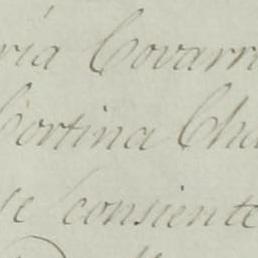 ría Covarr
Cortina Cha
te consiente